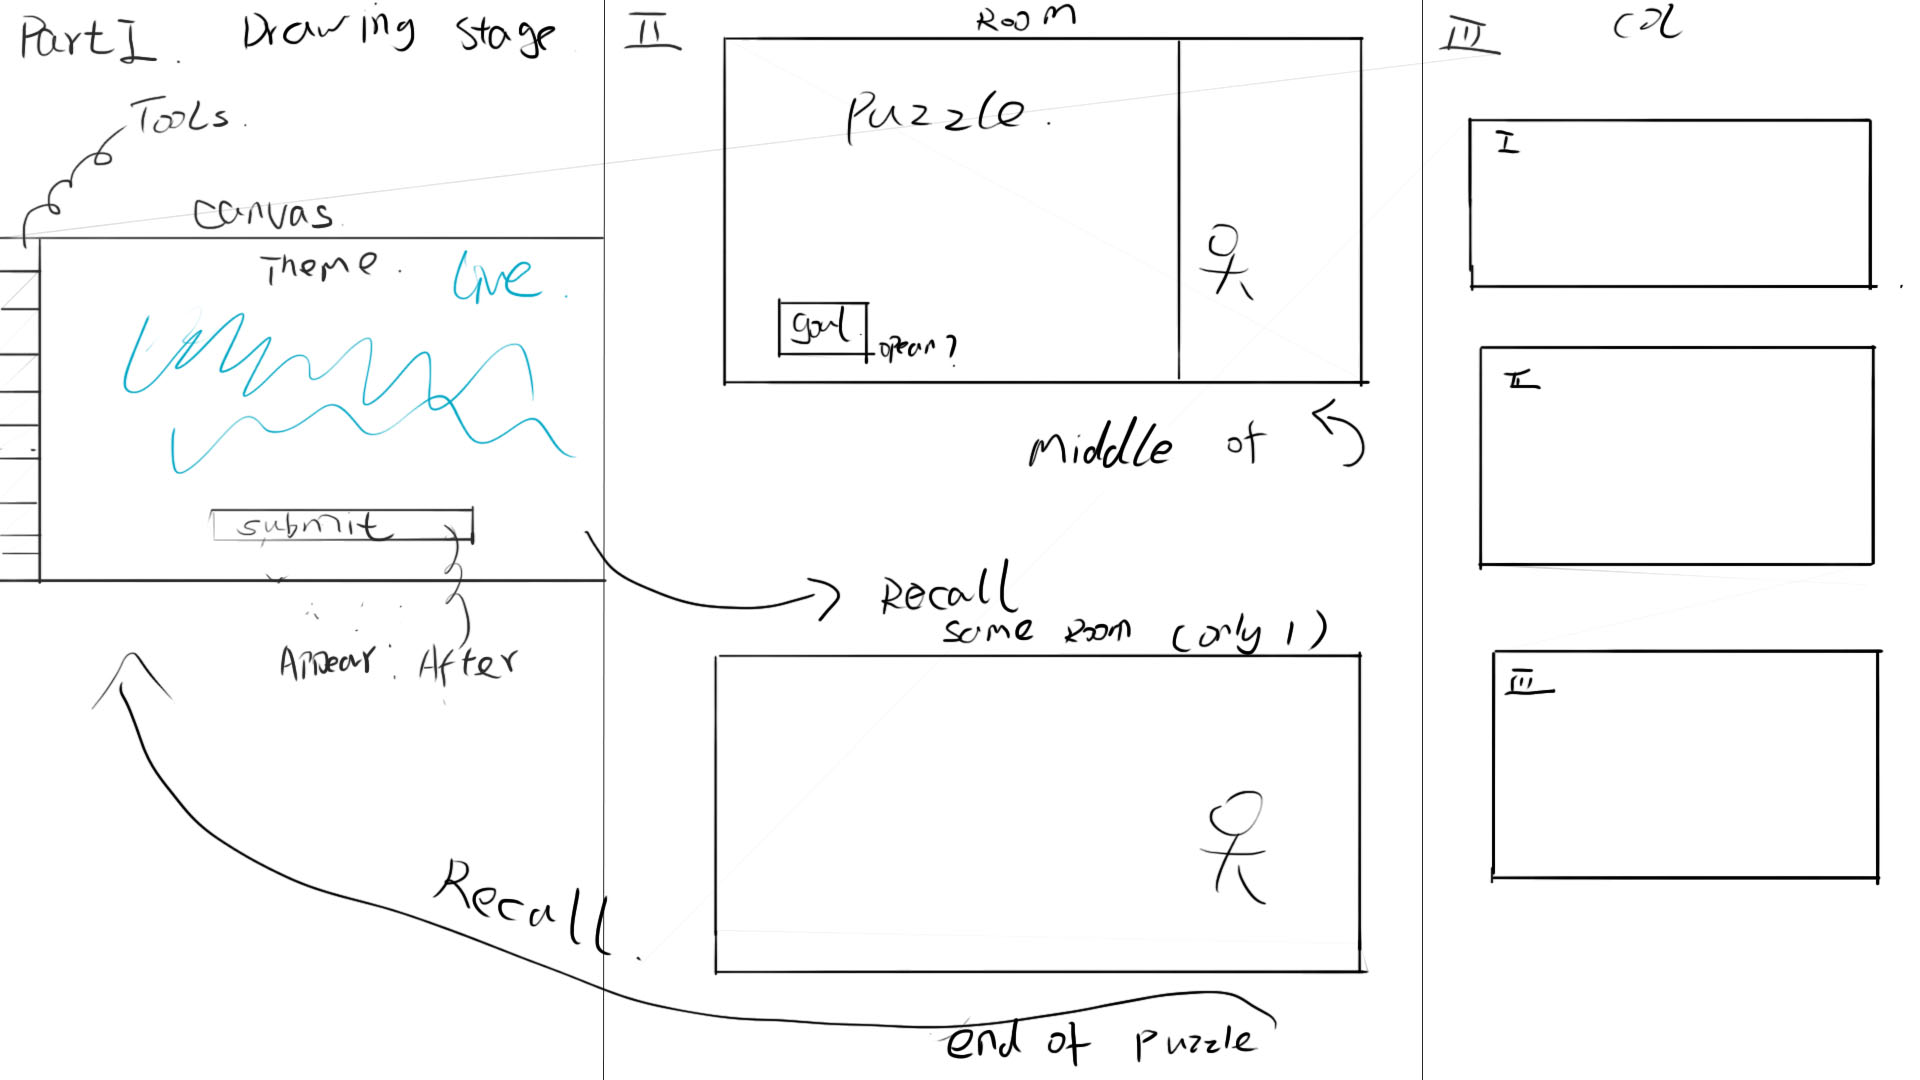 Part I. Drawing stage
Tools.
Canvas.
Theme. Live.
submit
Appear: After
Recall.
II
Room
Puzzle.
goal.
Middle of
Recall
same Room (only 1)
end of puzzle
III
I
II
III